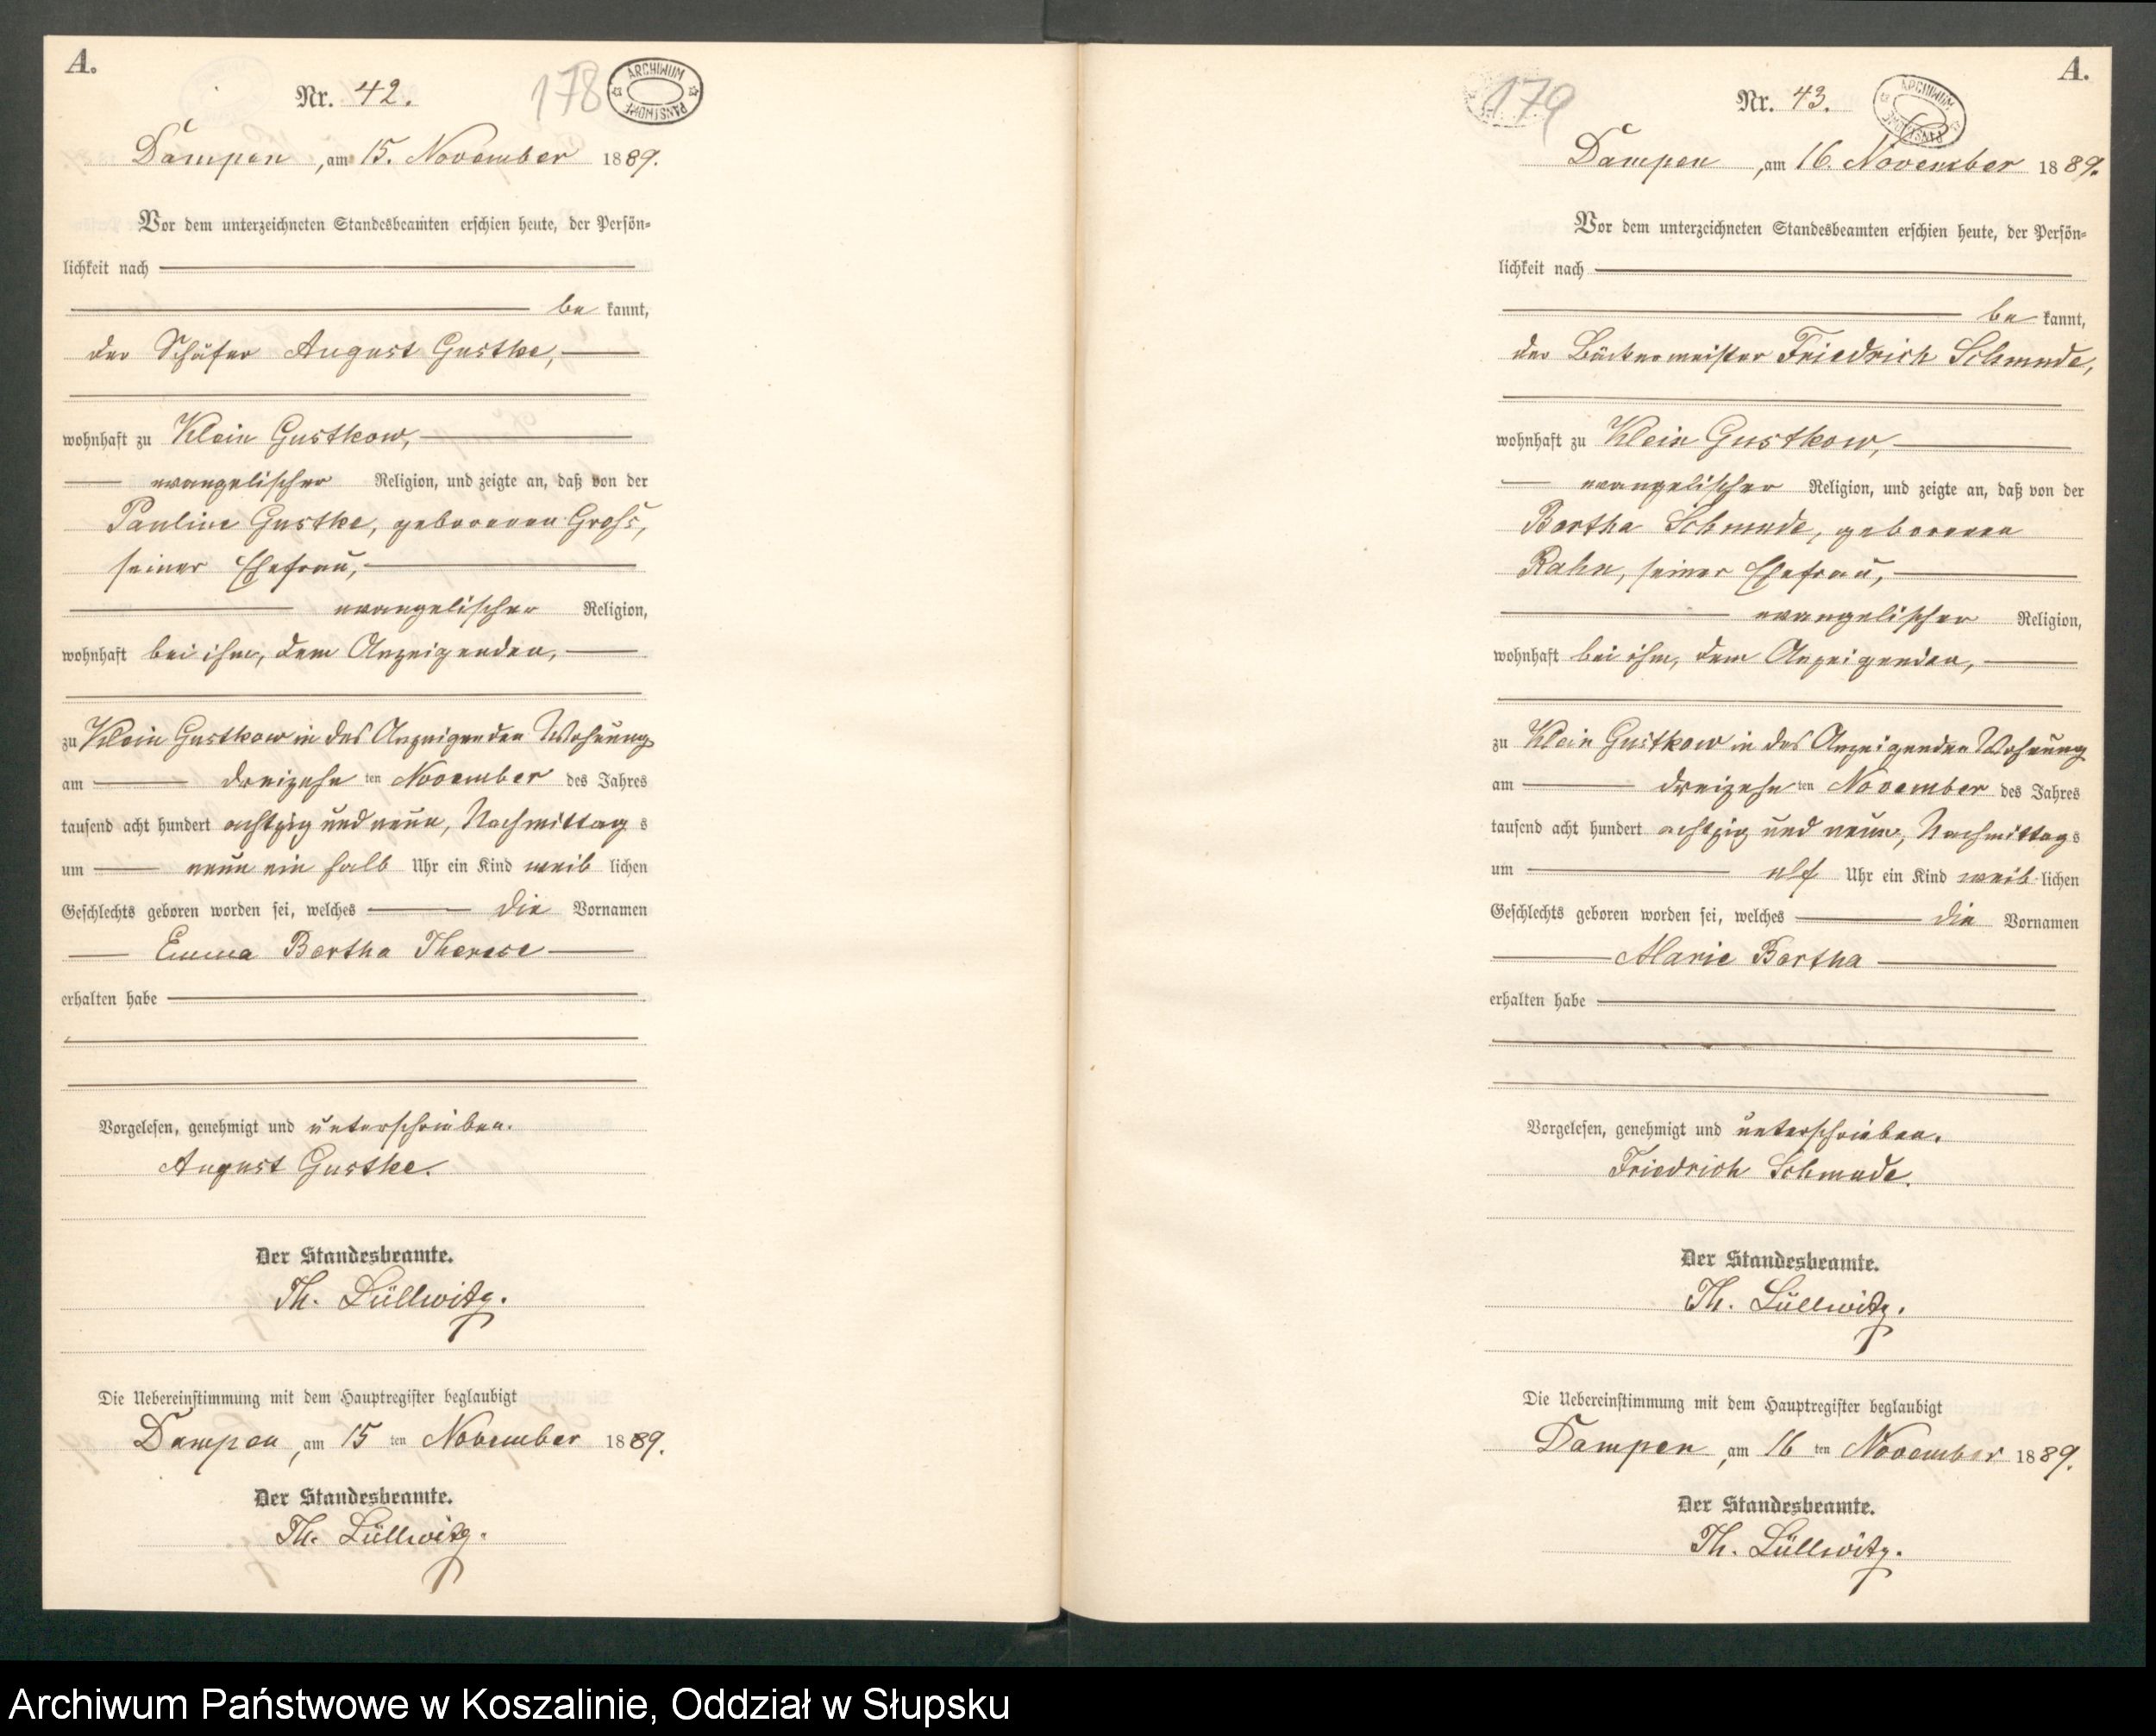 A.
Nr. 42.
178
ARCHIWUM PAŃSTWOWE
Dampen, am 15. November 1889.
Vor dem unterzeichneten Standesbeamten erschien heute, der Persön-
lichkeit nach
be kannt,
der Schäfer August Gustke,
wohnhaft zu Klein Gustkow,
evangelischer Religion, und zeigte an, daß von der
Pauline Gustke, geborenen Groß,
seiner Ehefrau,
evangelischer Religion,
wohnhaft bei ihm, dem Anzeigenden,
zu Klein Gustkow in des Anzeigenden Wohnung
am dreizehn ten November des Jahres
tausend acht hundert achtzig und neun, Nachmittag s
um neun ein halb Uhr ein Kind weib lichen
Geschlechts geboren worden sei, welches die Vornamen
Emma Bertha Therese
erhalten habe
Vorgelesen, genehmigt und unterschrieben.
August Gustke.
Der Standesbeamte.
Th. Lüllwitz.
Die Uebereinstimmung mit dem Hauptregister beglaubigt
Dampen, am 15 ten November 1889.
Der Standesbeamte.
Th. Lüllwitz.
A.
179
Nr. 43.
ARCHIWUM PAŃSTWOWE
Dampen, am 16. November 1889.
Vor dem unterzeichneten Standesbeamten erschien heute, der Persön-
lichkeit nach
be kannt,
der Bäckermeister Friedrich Schmude,
wohnhaft zu Klein Gustkow,
evangelischer Religion, und zeigte an, daß von der
Bertha Schmude, geborenen
Rahn, seiner Ehefrau,
evangelischer Religion,
wohnhaft bei ihm, dem Anzeigenden,
zu Klein Gustkow in des Anzeigenden Wohnung
am dreizehn ten November des Jahres
tausend acht hundert achtzig und neun, Nachmittag s
um elf Uhr ein Kind weib lichen
Geschlechts geboren worden sei, welches die Vornamen
Marie Bertha
erhalten habe
Vorgelesen, genehmigt und unterschrieben.
Friedrich Schmude.
Der Standesbeamte.
Th. Lüllwitz.
Die Uebereinstimmung mit dem Hauptregister beglaubigt
Dampen, am 16 ten November 1889.
Der Standesbeamte.
Th. Lüllwitz.
Archiwum Państwowe w Koszalinie, Oddział w Słupsku